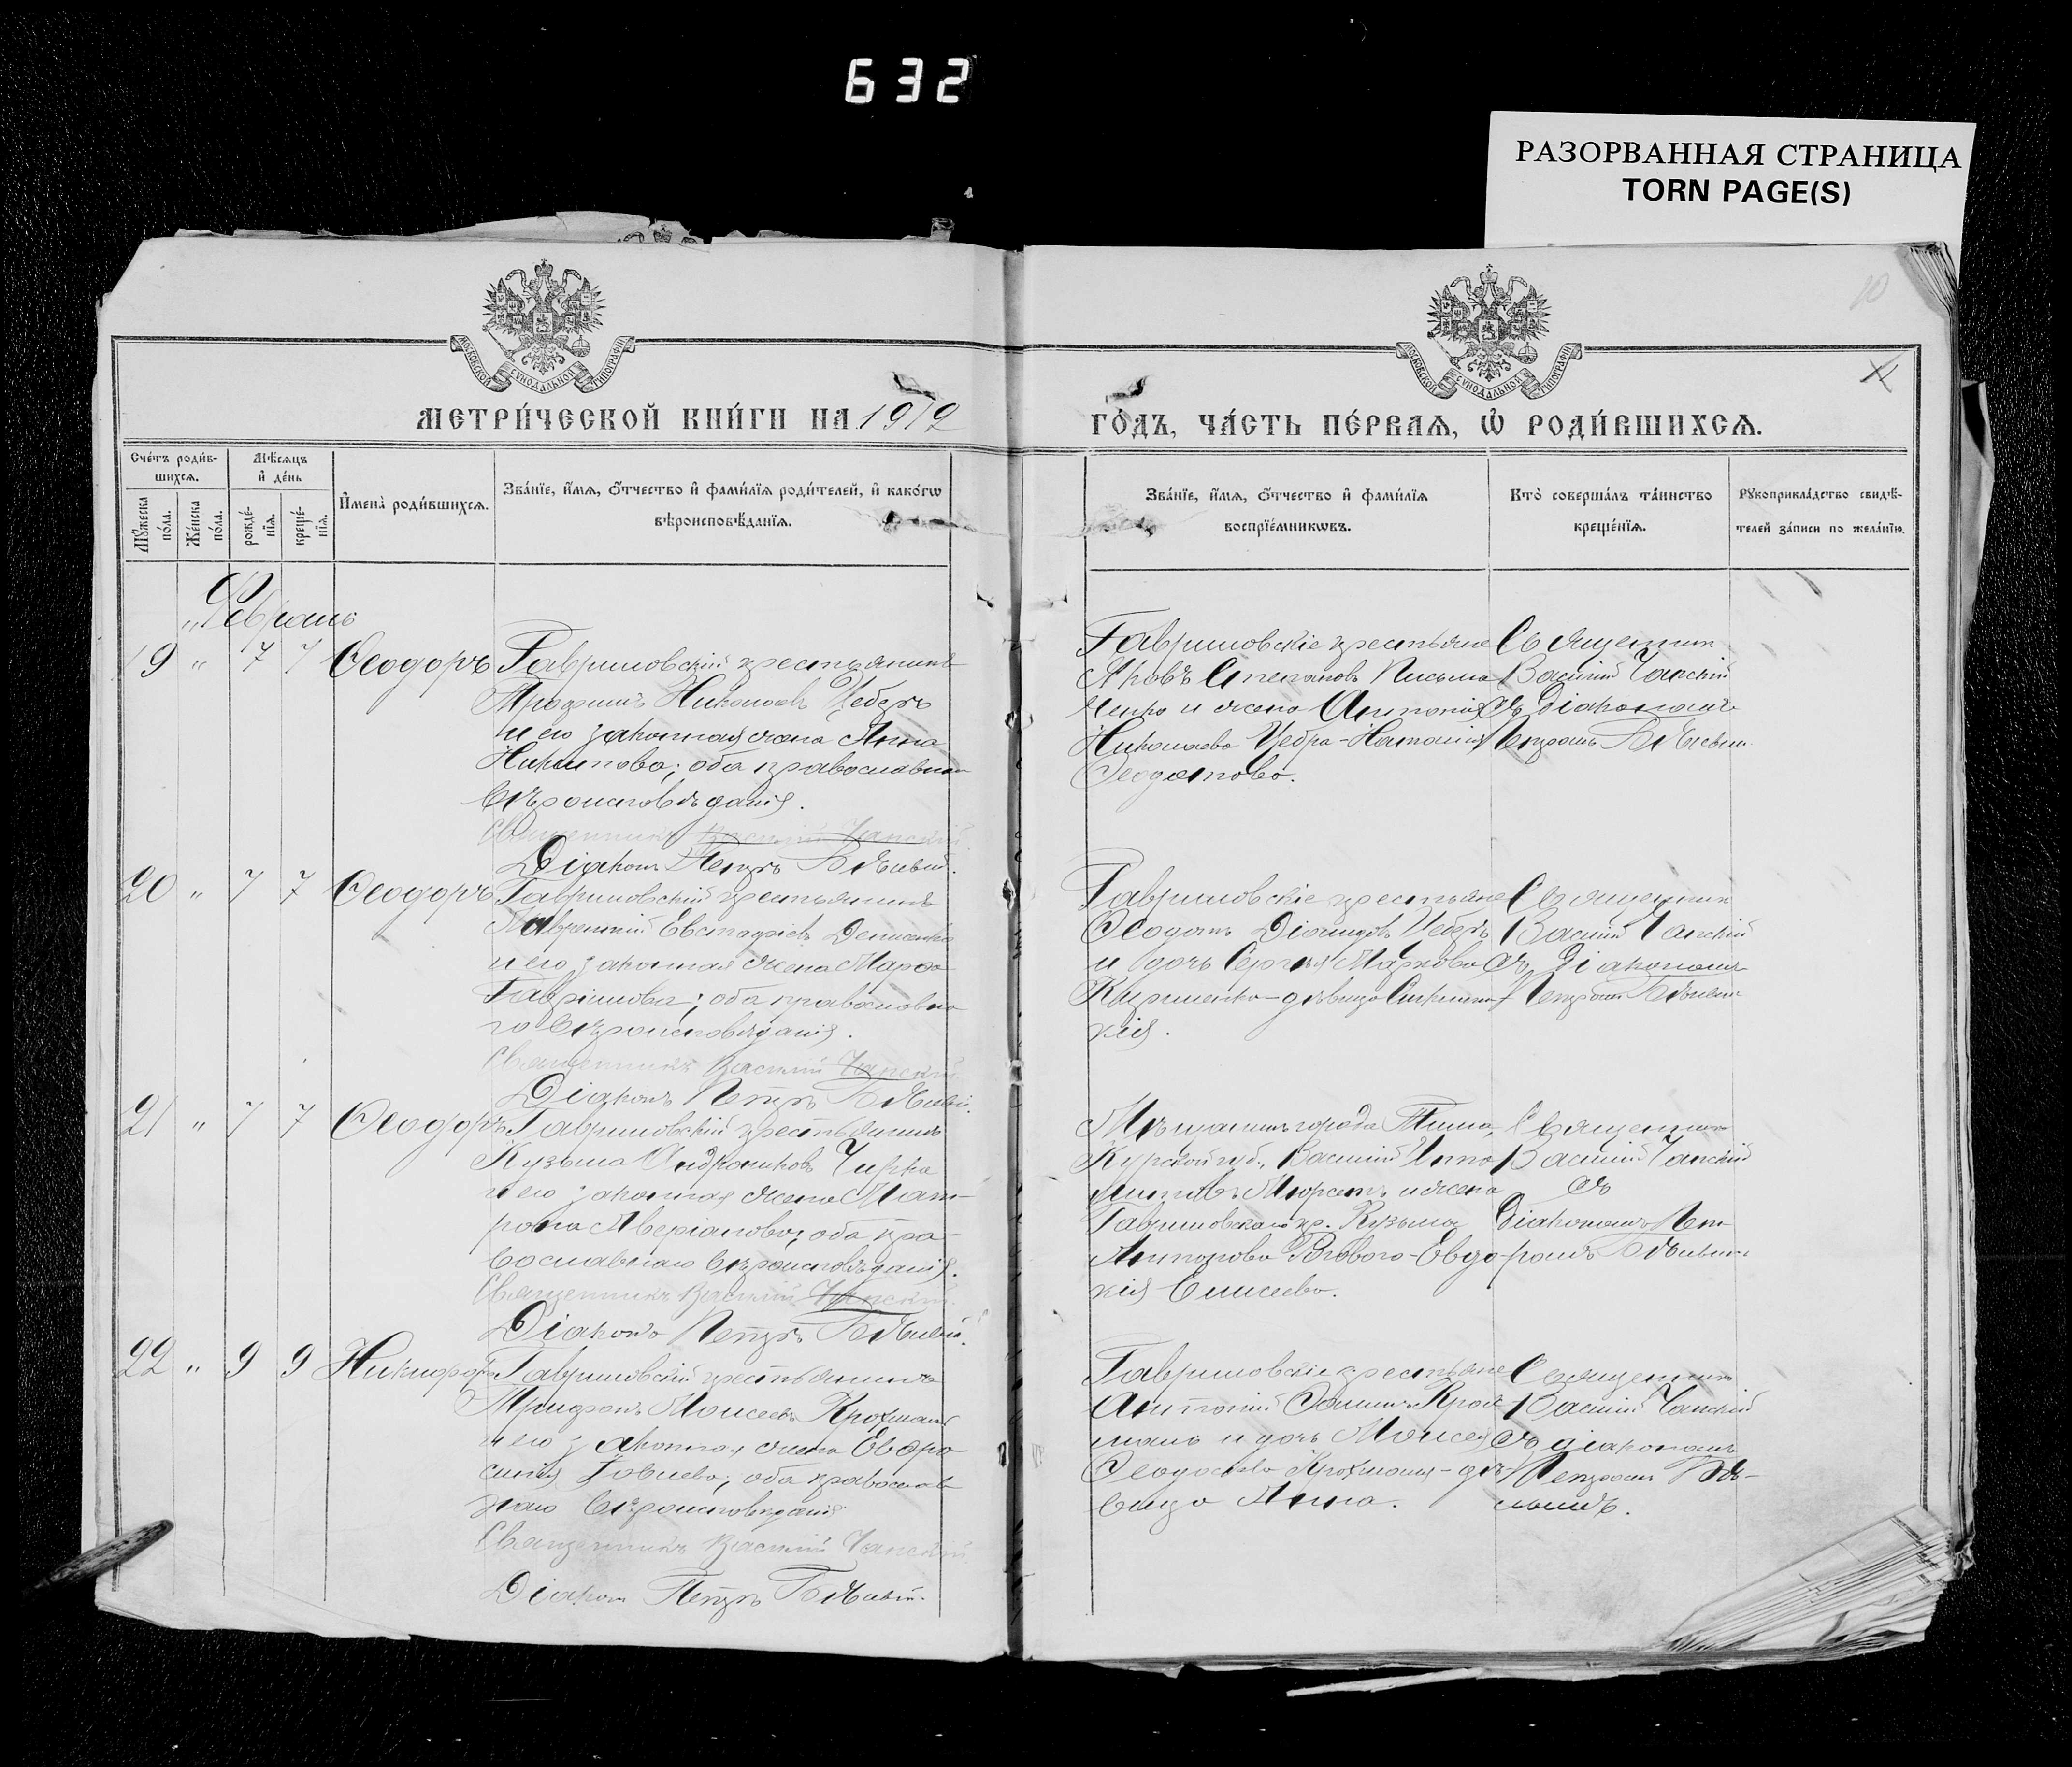 632
РАЗОРВАННАЯ СТРАНИЦА
TORN PAGE(S)
10
МОСКОВСКОЙ СѴНОДАЛЬНОЙ ТИПОГРАФІИ
МОСКОВСКОЙ СѴНОДАЛЬНОЙ ТИПОГРАФІИ
МЕТРИ́ЧЕСКОЙ КНИ́ГИ НА 1912
ГО́ДЪ, ЧА́СТЬ ПЕ́РВАѦ, Ѡ҆ РОДИ́ВШИХСѦ.
Сче́тъ роди́в-
шихсѧ.
Мꙋжеска по́ла.
Же́нска по́ла.
Мѣ́сѧцъ
и҆ де́нь
рожде́-
нїѧ.
креще́-
нїѧ.
И҆мена̀ роди́вшихсѧ.
Зва́нїе, и҆́мѧ, ѻ҆́тчество и҆ фами́лїѧ роди́телей, и҆ како́гѡ
вѣроисповѣ́данїѧ.
Зва́нїе, и҆́мѧ, ѻ҆́тчество и҆ фами́лїѧ
воспрїе́мникѡвъ.
Кто̀ соверша́лъ та́инство
креще́нїѧ.
Рꙋкоприкла́дство свидѣ́-
телей за́писи по жела́нїю.
Февраль
19 " 7 7 Ѳеодоръ Гавриловскій крестьянинъ
Трофимъ Николаевъ Цебръ
и его законная жена Анна
Никитова; оба православнаго
вѣроисповѣданія.
Священникъ Василій Чанскій
Діаконъ Петръ
Гавриловскіе крестьяне
Яковъ Степановъ Письма
ченко и жена Антонія
Николаева Цебра - Наталія
Ѳеодотова.
Священник
Василій Чанскій
съ діакономъ
Петромъ
20 " 7 7 Ѳеодоръ Гавриловскій крестьянинъ
Лаврентій Евстафіевъ Денисенко
и его законная жена Марѳа
Гавріилова; оба православна
го вѣроисповѣданія.
Священникъ Василій Чанскій
Діаконъ Петръ
Гавриловскіе крестьяне
Ѳеодотъ Цебръ
и дочь Сергѣя Маркова
Кириченко - дѣвица Синкли
кія.
Священник
Василій Чанскій
съ діакономъ
Петромъ
21 " 7 7 Ѳеодоръ Гавриловскій крестьянинъ
Кузьма Андрониковъ Чирка
и его законная жена Мат-
рона Аверіанова, оба пра-
вославнаго вѣроисповѣданія.
Священникъ Василій Чанскій
Діаконъ Петръ
Мѣщанинъ города Тима,
Курской губ., Василій Иппо
литовъ и жена
Гавриловскаго кр. Кузьмы
Антонова Рогового - Евдо
кія Елисеева.
Священник
Василій Чанскій
съ
діакономъ Пет
ромъ
22 " 9 9 Никифоръ Гавриловскій крестьянинъ
Трифонъ Моисеевъ Крохмаль
и его законная жена Евфро
синія Іовлева; оба православ
наго вѣроисповѣданія
Священникъ Василій Чанскій
Діаконъ Петръ
Гавриловскіе крестьяне
Антоній Крох
маль и дочь Моисея
Ѳеодосіева Крохмаля - дѣ-
вица Анна.
Священник
Василій Чанскій
съ діакономъ
Петромъ